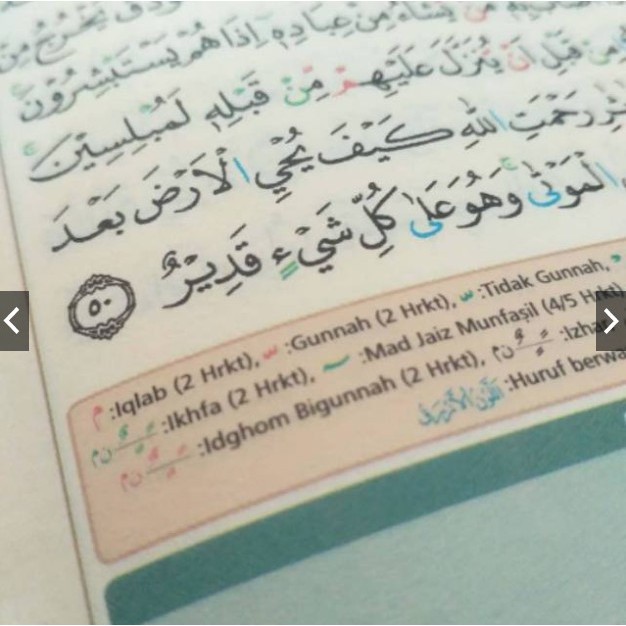 يَخْرُجُ مِنْ
مَنْ يَشَاءُ مِنْ عِبَادِهٖ اِذَا هُمْ يَسْتَبْشِرُوْنَ
قَبْلِ اَنْ يُنَزَّلَ عَلَيْهِمْ مِنْ قَبْلِهٖ لَمُبْلِسِيْنَ
رَحْمَتِ اللّٰهِ كَيْفَ يُحْيِ الْاَرْضَ بَعْدَ
الْمَوْتٰى وَهُوَ عَلٰى كُلِّ شَيْءٍ قَدِيْرٌ ٥٠
م :Iqlab (2 Hrkt), :Gunnah (2 Hrkt), :Tidak Gunnah,
ن م :Ikhfa (2 Hrkt), :Mad Jaiz Munfaṣil (4/5 Hrkt)
ن م :Idghom Bigunnah (2 Hrkt), ن م :Izha
:Huruf berwa